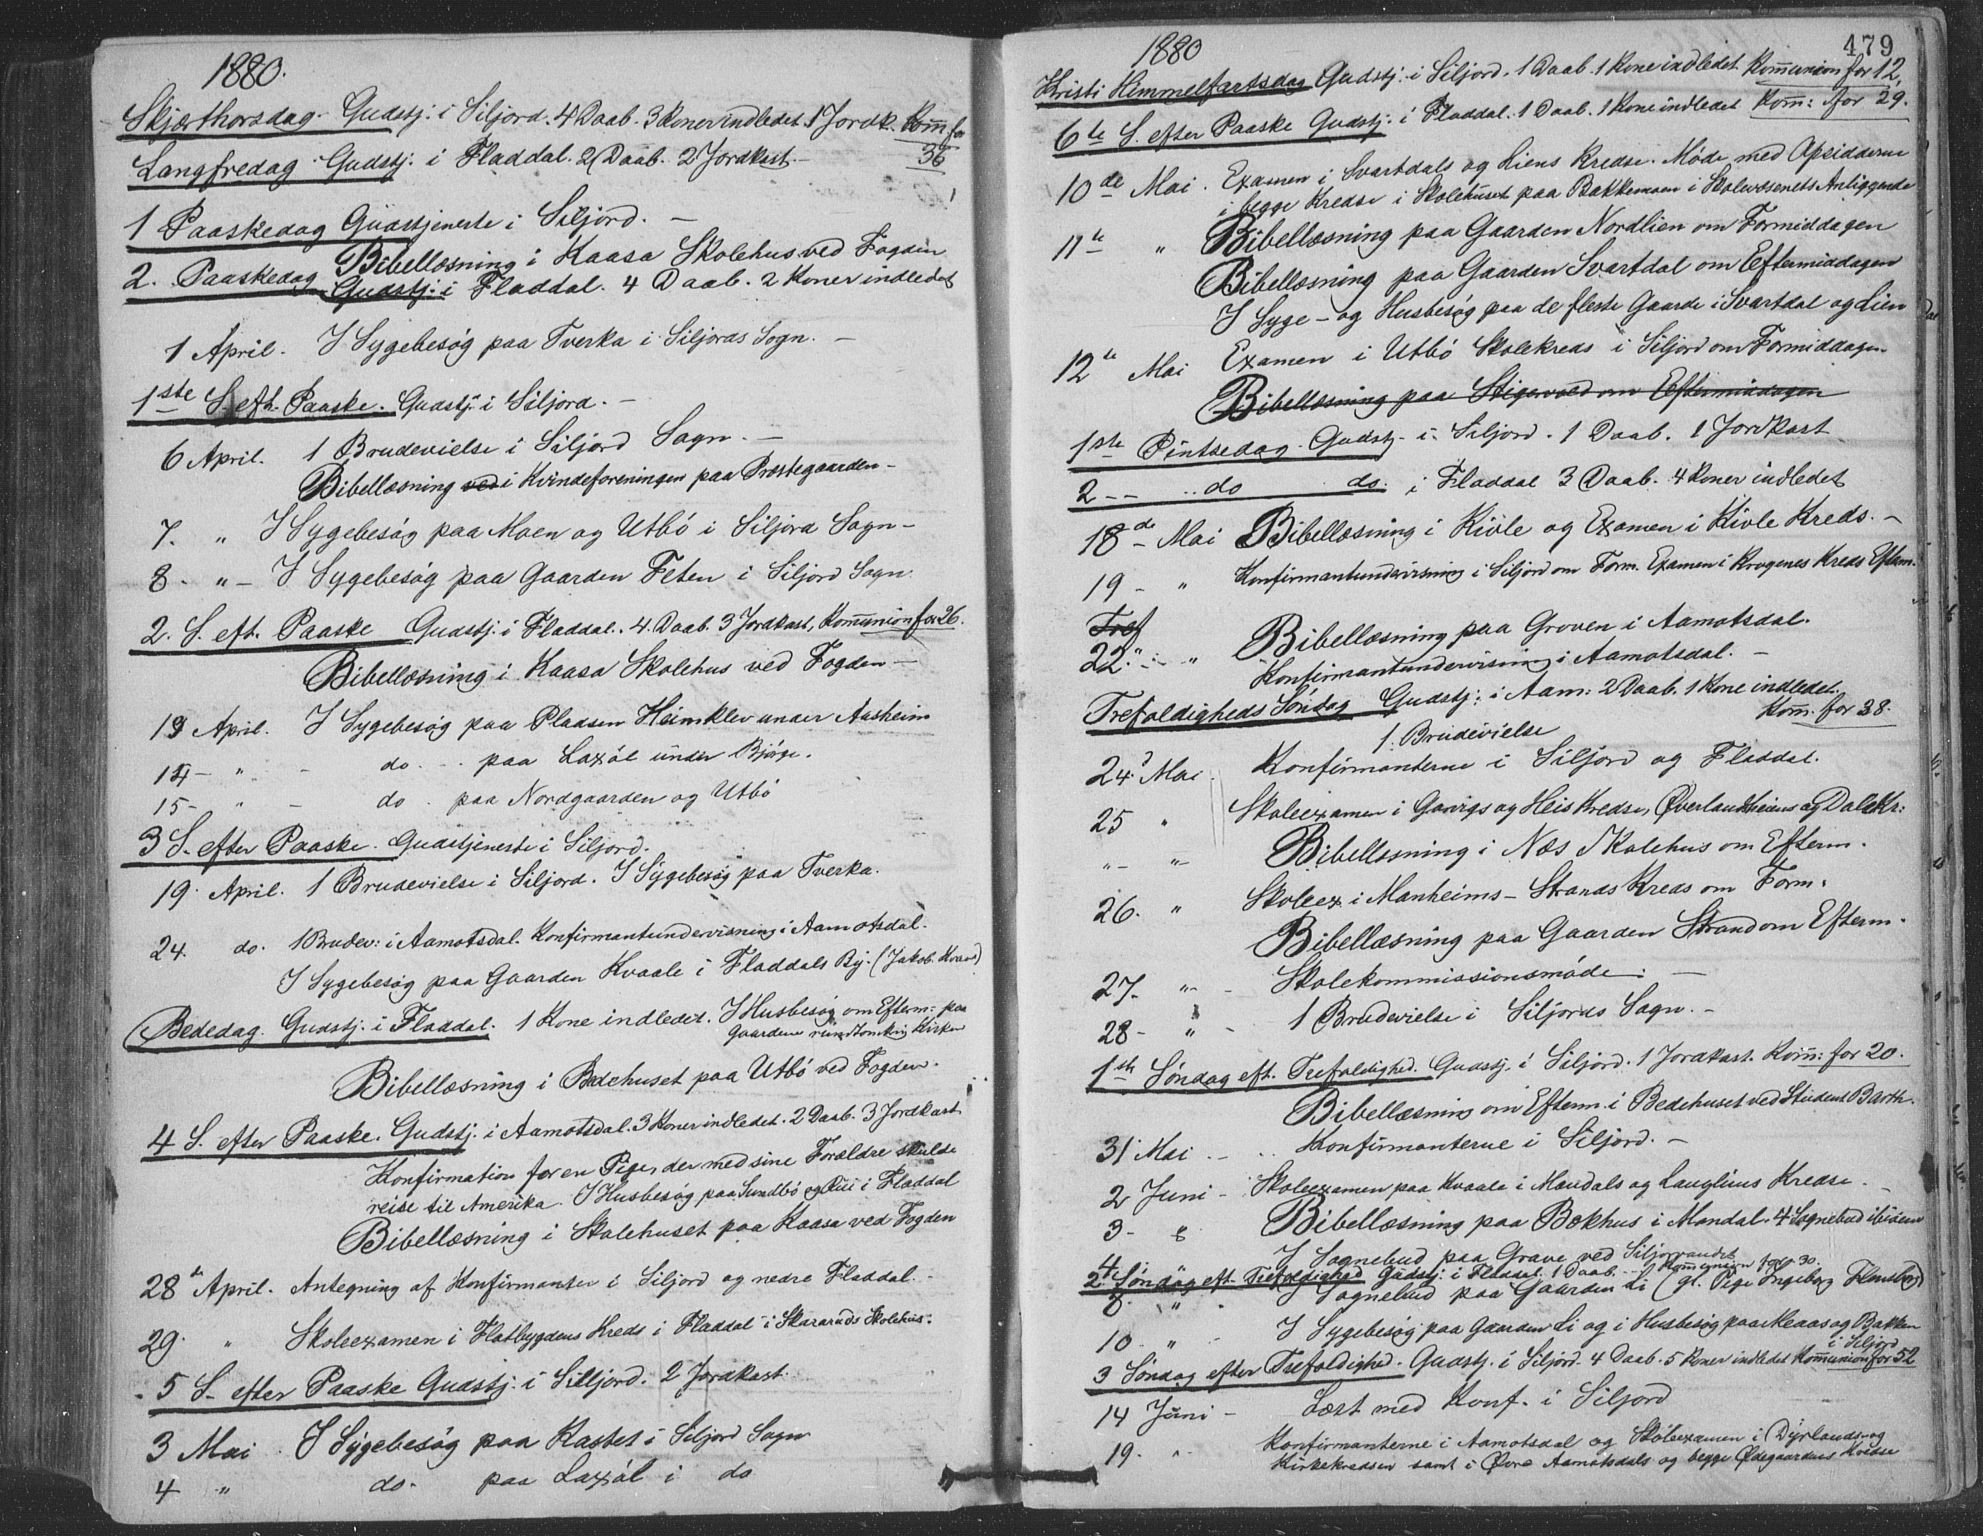 1880.
Skjærthorsdag. Gudstj. i Siljord. 4 Daab. 3 Koner indledet. 1 Jordk. Kom̄. for
36
Langfredag. Gudstj. i Fladdal. 2 Daab. 2 Jordkast.
1 Paaskedag Gudstjeneste i Siljord. —
Bibellæsning i Kaasa Skolehus ved Fogden
2. Paaskedag Gudstj: i Fladdal. 4 Daab. 2 Koner indledet
1 April. I Sygebesøg paa Tverka i Siljords Sogn. —
1ste S. eft. Paaske. Gudstj. i Siljord. —
6 April. 1 Brudevielse i Siljord Sogn. —
Bibellæsning ved i Kvindeforeningen paa Præstegaarden —
7. " I Sygebesøg paa Moen og Utbö i Siljord Sogn —
8 - " — I Sygebesøg paa Gaarden Feten i Siljord Sogn.
2. S. eft. Paaske Gudstj. i Fladdal. 4 Daab. 3 Jordkast, Kommunion for 26.
Bibellæsning i Kaasa Skolehus ved Fogden —
13 April. I Sygebesøg paa Pladsen Heimklev under Aasheim
14 — " — do. . . paa Laxöl under Bjørge.
15 — " — do. paa Nordgaarden og Utbö
3 S. efter Paaske. Gudstjeneste i Siljord.
19. April. 1 Brudevielse i Siljord. I Sygebesøg paa Tverka.
24. do. 1 Brudev: i Aamotsdal. Konfirmantundervisning i Aamotsdal.
I Sygebesøg paa Gaarden Kvaale i Fladdals By. (Jakob
Bededag. Gudstj. i Fladdal. 1 Kone indledet. I Husbesøg om Efterm: paa
Gaardene rundt omkring Kirken
Bibellæsning i Bedehuset paa Utbö ved Fogden.
4 S. efter Paaske. Gudstj. i Aamotsdal. 3 Koner indledet. 2 Daab. 3 Jordkast
Konfirmation for en Pige, der med sine Forældre skulde
reise til Amerika. I Husbesøg paa Sundbö og Rui i Fladdal
Bibellæsning i Skolehuset paa Kaasa ved Fogden
28de April. Antegning af Konfirmanter i Siljord og nedre Fladdal. —
29. " Skoleexamen i Flatbygdens Kreds i Fladdal i Skararuds Skolehus.
5 S. efter Paaske Gudstj. i Silljord. 2 Jordkast.
3 Mai . I Sygebesøg paa Kastet i Siljord Sogn
4 " do. paa Laxöl i do
479
1880
Kristi Himmelfartsdag Gudstj. i Siljord. 1 Daab. 1 Kone indledet Kommunion for 12.
6te S. efter Paaske Gudstj. i Fladdal. 1 Daab. 1 Kone indledet Kom̄: for 29.
10de Mai. Examen i Svartdals og Liens Kredse. Møde med Opsidderne
i begge Kredse i Skolehuset paa Bakkemoen i Skolevæsenets Anliggende
11te " Bibellæsning paa Gaarden Nordlien om Formiddagen
Bibellæsning paa Gaarden Svartdal om Eftermiddagen
I Syge- og Husbesøg paa de fleste Gaarde i Svartdal og Lien
12te Mai Examen i Utbö Skolekreds i Siljord om Formiddagen.
Bibellæsning paa om Eftermiddagen
1ste Pintsedag. Gudstj. i Siljord. 1 Daab. 1 Jordkast
2 — — .. do do. i Fladdal 3 Daab. 4 Koner indledet
18de Mai Bibellæsning i Kivle og Examen i Kivle Kreds. —
19 - " Konfirmantundervisning i Siljord om Form. Examen i Krogenes Kreds Efterm.
Tref
22. " — " Bibellæsning paa Groven i Aamotsdal.
Konfirmantundervisning i Aamotsdal. —
Trefoldigheds Søndag Gudstj: i Aam: 2 Daab. 1 Kone indledet.
Kom̄. for 38.
1. Brudevielse
24. Mai . Konfirmanterne i Siljord og Fladdal.
25 " Skoleexamen i Garvigs og Heis Kredse, Øverlandsheiens og Dale Kr:
" — " — Bibellæsning i Næs Skolehus om Efterm.
26. " Skoleex. i Manheims — Strands Kreds om Form.
Bibellæsning paa Gaarden Strand om Efterm.
27. " — - Skolekommissionsmøde. —
28 — " - 1 Brudevielse i Siljords Sogn. —
1ste Søndag eft. Trefoldighed. Gudstj. i Siljord. 1 Jordkast. Kom̄: for 20.
Bibellæsning om Efterm. i Bedehuset ved Student Barth.
31 Mai — . . Konfirmanterne i Siljord. —
2 Juni — Skoleexamen paa Kvaale i Mandals og Lauglins Kredse. —
3 — " Bibellæsning paa Bøkhus i Mandal. 4 Sognebud
4 " I Sognebud paa Grave ved Siljorvandet
2. Søndag eft. Trefoldighed Gudstj. i Fladdal. 1 Daab. — Kommunion for 30.
8. " . I Sognebud paa Gaarden Li (gl. Pige Ingeborg
10. " . I Sygebesøg paa Gaarden Li og i Husbesøg paa Kleaas og Bakken
i Siljord
3 Søndag efter Trefoldighed. Gudstj. i Siljord. 4 Daab. 5 Koner indledet Kommunion for 52
14 Juni — Læst med Konf. i Siljord
19. " Konfirmanterne i Aamotsdal og Skoleexamen i Dyrlands- og
Kirkekredsen samt i Øvre Aamotsdals og begge Ødegaardens Kredse